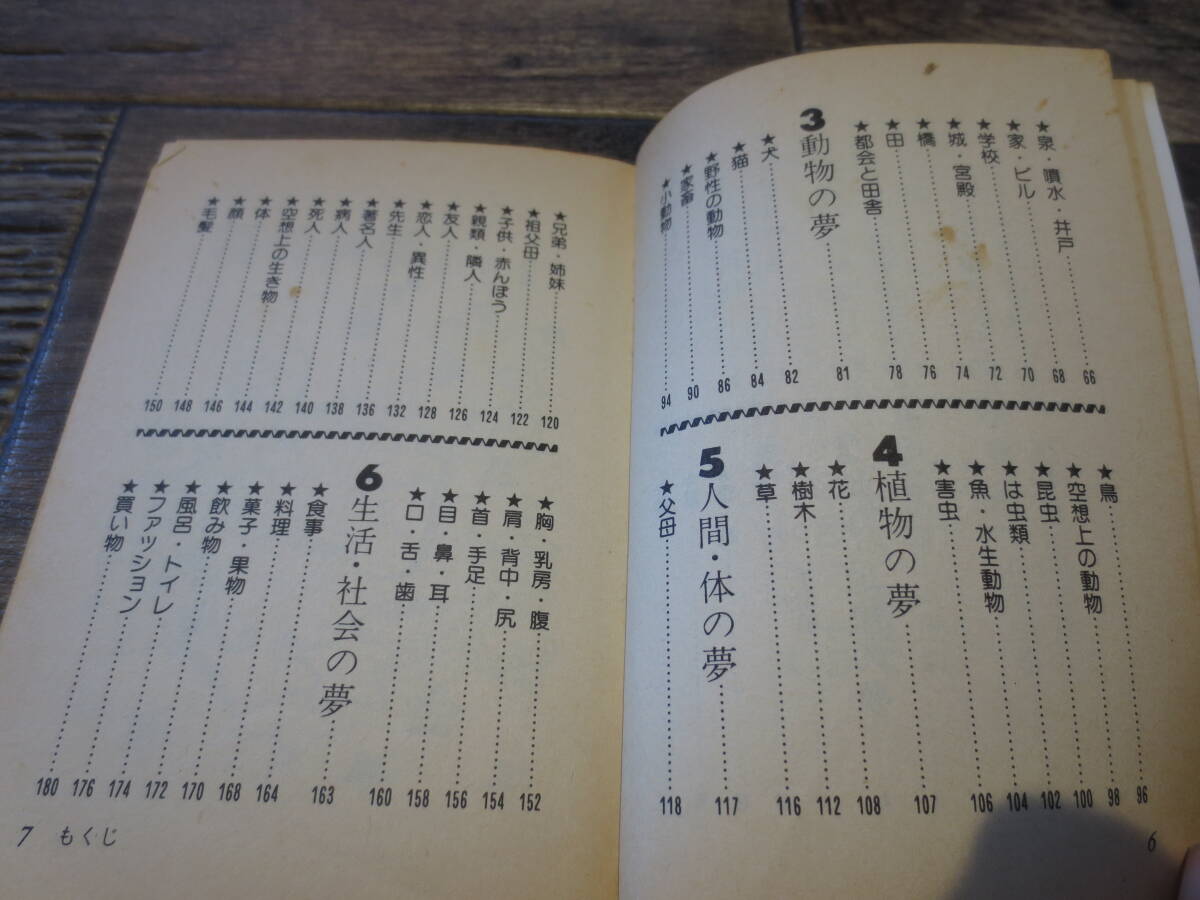 ★泉・噴水・井戸 66
★家・ビル 68
★学校 70
★城・宮殿 72
★橋 74
★田 76
★都会と田舎 78
3 動物の夢 81
★犬 82
★猫 84
★野性の動物 86
★家畜 90
★小動物 94
★鳥 96
★空想上の動物 98
★昆虫 100
★は虫類 102
★魚・水生動物 104
★害虫 106
4 植物の夢 107
★花 108
★樹木 112
★草 116
5 人間・体の夢 117
★父母 118
6
★兄弟・姉妹 120
★祖父母 122
★子供・赤んぼう 124
★親類・隣人 126
★友人 128
★恋人・異性 132
★先生 136
★著名人 138
★病人 140
★死人 142
★空想上の生き物 144
★体 146
★顔 148
★毛髪 150
★胸・乳房・腹 152
★肩・背中・尻 154
★首・手足 156
★目・鼻・耳 158
★口・舌・歯 160
6 生活・社会の夢 163
★食事 164
★料理 168
★菓子・果物 170
★飲み物 172
★風呂・トイレ 174
★ファッション 176
★買い物 180
7 もくじ